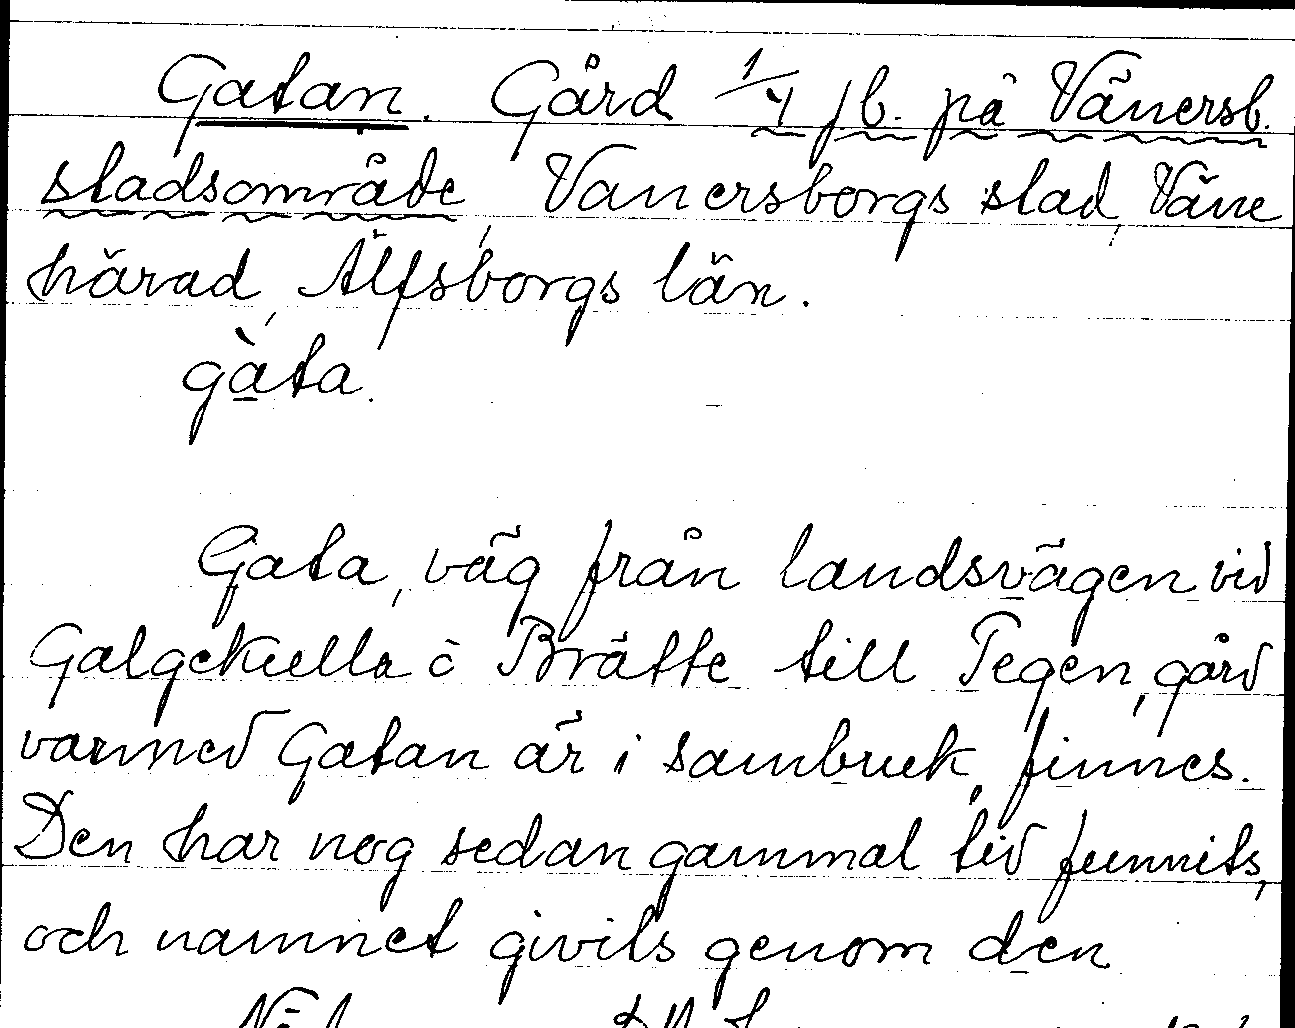 Gatan. Gård 1/4 jb. på Vänersb.
stadsområde, Vanersborgs stad, Väne
härad, Älfsborgs län.
gàta.
Gata, väg från landsvägen vid
Galgekulla å Brätte till Tegen, gård
varmed Gatan är i sambruk, finnes.
Den har nog sedan gammal tid funnits,
och namnet givits genom den